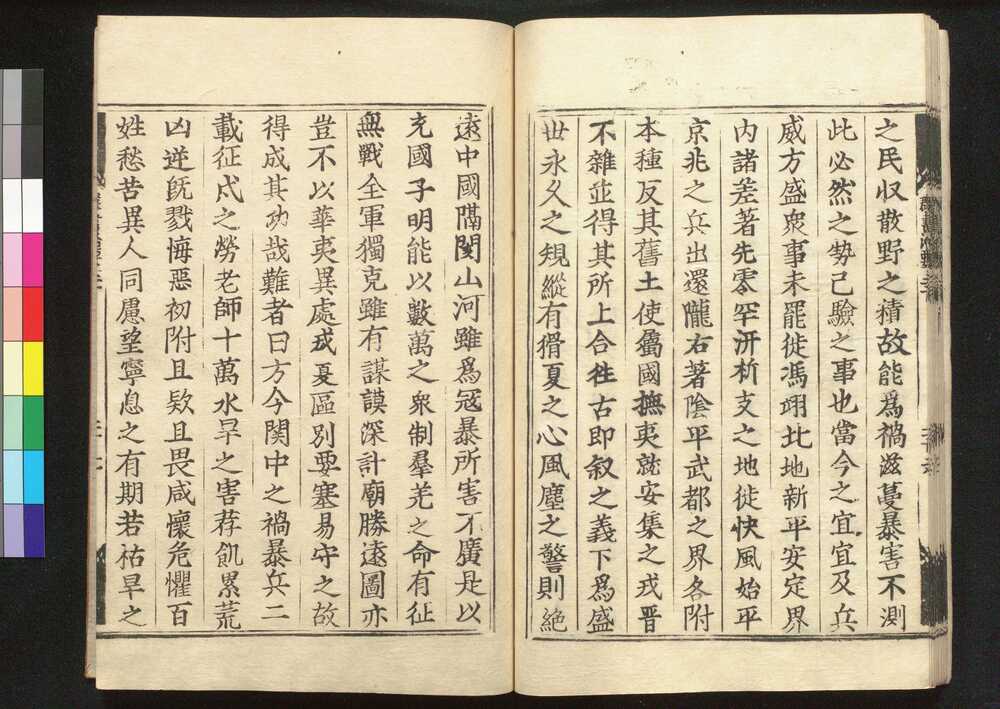 之民収散野之積故能爲禍滋蔓暴害不測
此必然之勢已驗之事也當今之宜宜及兵
威方盛衆事未罷徙馮翊北地新平安定界
内諸羌著先零罕汧析支之地徙扶風始平
京兆之兵出還隴右著陰平武都之界各附
本種反其舊土使屬國撫夷就安集之戎晋
不雜並得其所上合徃古即叙之義下爲盛
世永久之規縱有猾夏之心風塵之警則絶
遠中國隔閡山河雖爲冦暴所害不廣是以
充國子明能以數萬之衆制羣羌之命有征
無戰全軍獨克雖有謀謨深計廟勝遠圖亦
豈不以華夷異處戎夏區別要塞易守之故
得成其功哉難者曰方今関中之禍暴兵二
載征戍之勞老師十萬水旱之害荐飢累荒
凶逆既戮悔惡初附且欵且畏咸懷危懼百
姓愁苦異人同慮望寧息之有期若祐旱之